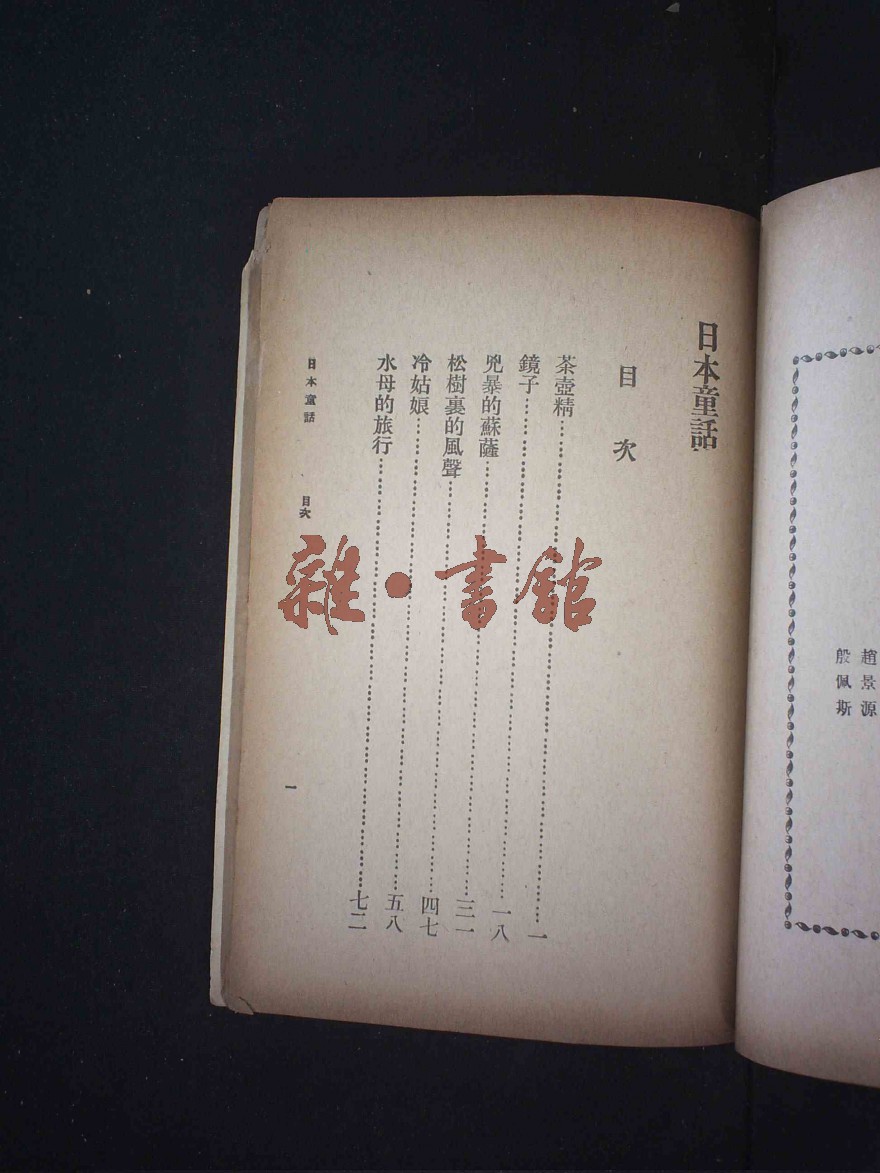 趙景源
殷佩斯
日本童話
目次
茶壺精……一
鏡子……一八
兇暴的蘇薩……三一
松樹裏的風聲……四七
冷姑娘……五八
水母的旅行……七二
日本童話 目次 一
雜·書館